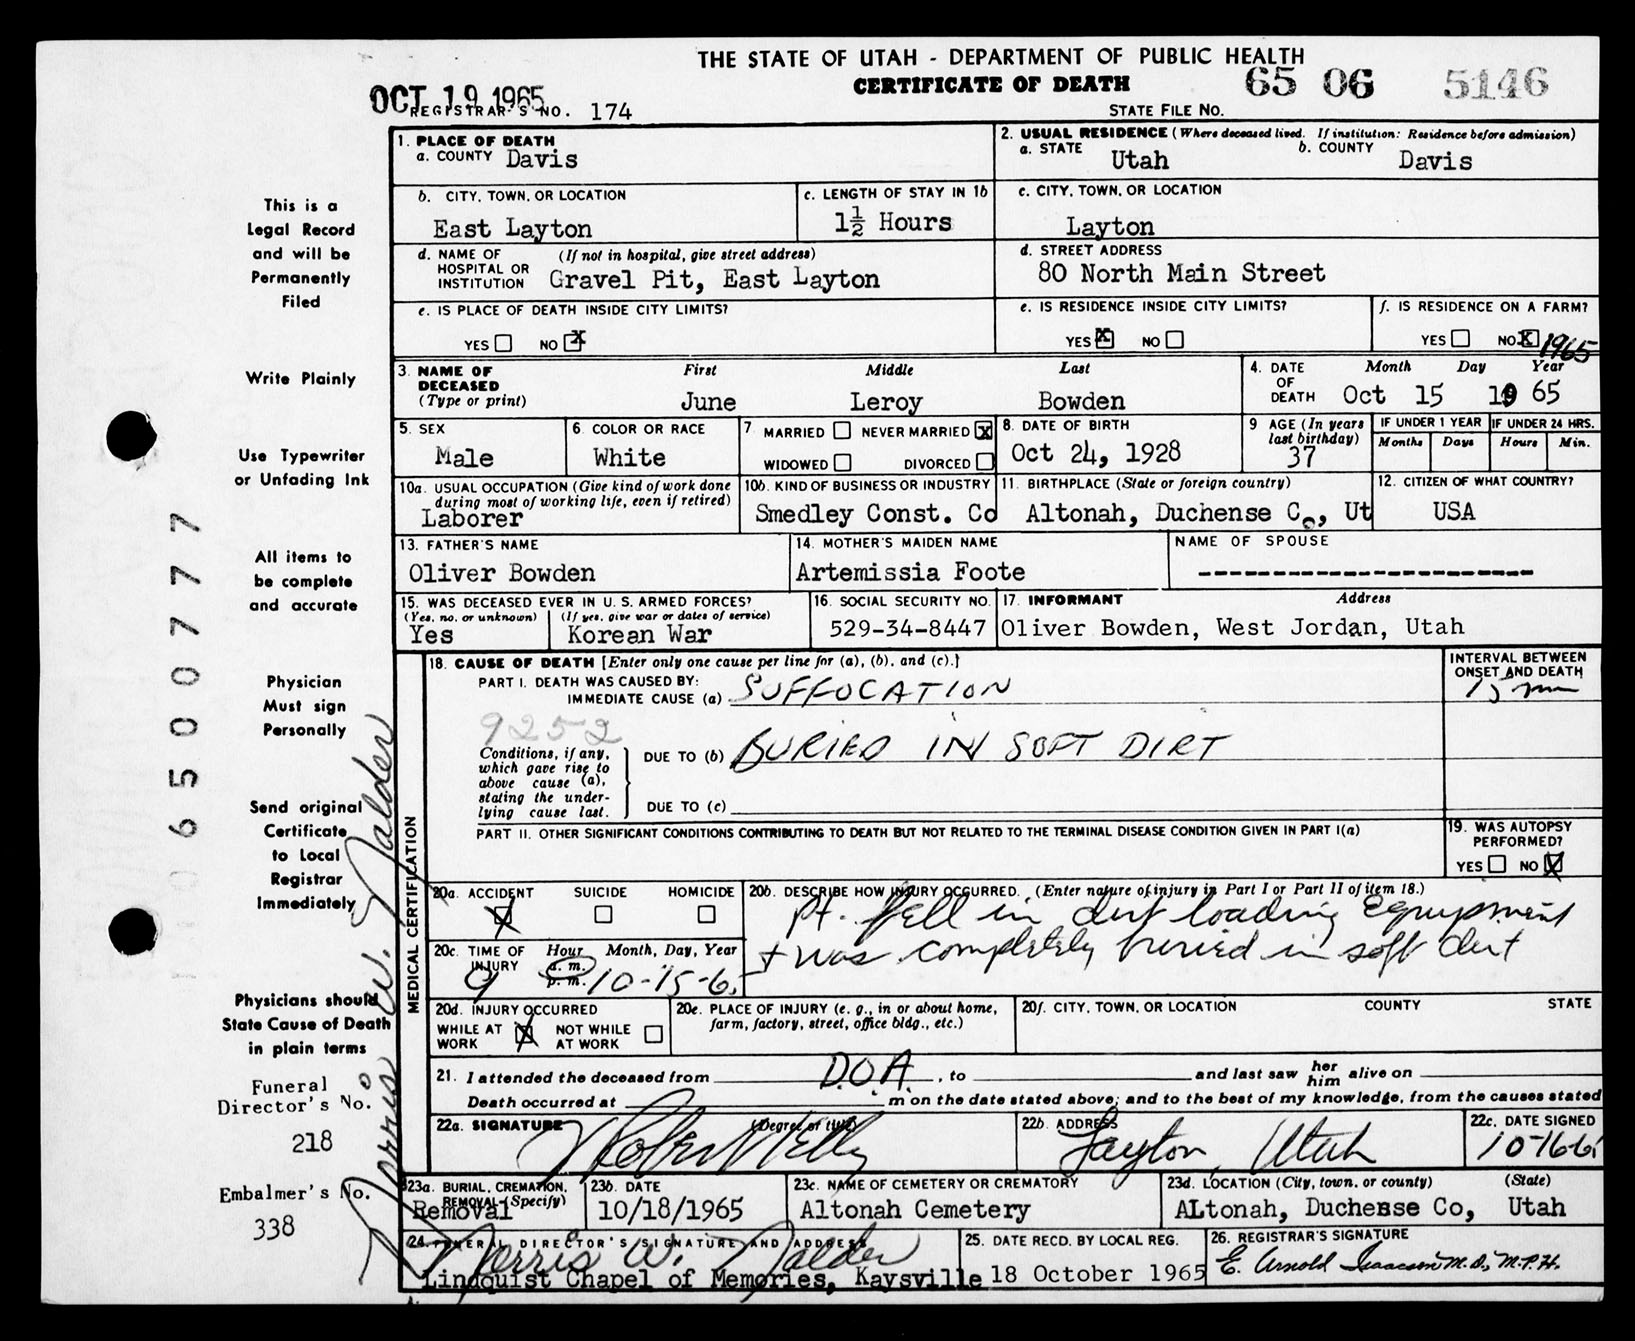 THE STATE OF UTAH - DEPARTMENT OF PUBLIC HEALTH
CERTIFICATE OF DEATH
65 06 5146
OCT 19 1965
REGISTRAR'S NO. 174
STATE FILE NO.
1. PLACE OF DEATH
a. COUNTY Davis
2. USUAL RESIDENCE (Where deceased lived. If institution: Residence before admission)
a. STATE Utah b. COUNTY Davis
b. CITY, TOWN, OR LOCATION East Layton
c. LENGTH OF STAY IN 1b 1½ Hours
c. CITY, TOWN, OR LOCATION Layton
d. NAME OF HOSPITAL OR INSTITUTION (If not in hospital, give street address) Gravel Pit, East Layton
d. STREET ADDRESS 80 North Main Street
e. IS PLACE OF DEATH INSIDE CITY LIMITS?
YES NO X
e. IS RESIDENCE INSIDE CITY LIMITS?
YES X NO
f. IS RESIDENCE ON A FARM?
YES NO X
1965
3. NAME OF DECEASED (Type or print)
First Middle Last
June Leroy Bowden
4. DATE OF DEATH Month Day Year
Oct 15 1965
5. SEX Male
6. COLOR OR RACE White
7. MARRIED NEVER MARRIED X
WIDOWED DIVORCED
8. DATE OF BIRTH Oct 24, 1928
9 AGE (In years last birthday) 37
IF UNDER 1 YEAR Months Days
IF UNDER 24 HRS. Hours Min.
10a. USUAL OCCUPATION (Give kind of work done during most of working life, even if retired) Laborer
10b. KIND OF BUSINESS OR INDUSTRY Smedley Const. Co
11. BIRTHPLACE (State or foreign country) Altonah, Duchense Co, Ut
12. CITIZEN OF WHAT COUNTRY? USA
13. FATHER'S NAME Oliver Bowden
14. MOTHER'S MAIDEN NAME Artemissia Foote
NAME OF SPOUSE
15. WAS DECEASED EVER IN U. S. ARMED FORCES?
(Yes, no, or unknown) Yes
(If yes, give war or dates of service) Korean War
16. SOCIAL SECURITY NO. 529-34-8447
17. INFORMANT Address
Oliver Bowden, West Jordan, Utah
MEDICAL CERTIFICATION
18. CAUSE OF DEATH [Enter only one cause per line for (a), (b), and (c).]
PART I. DEATH WAS CAUSED BY:
IMMEDIATE CAUSE (a) SUFFOCATION
INTERVAL BETWEEN ONSET AND DEATH
15 min
9252
Conditions, if any, which gave rise to above cause (a), stating the underlying cause last.
DUE TO (b) BURIED IN SOFT DIRT
DUE TO (c)
PART II. OTHER SIGNIFICANT CONDITIONS CONTRIBUTING TO DEATH BUT NOT RELATED TO THE TERMINAL DISEASE CONDITION GIVEN IN PART I(a)
19. WAS AUTOPSY PERFORMED?
YES NO X
20a. ACCIDENT X SUICIDE HOMICIDE
20b. DESCRIBE HOW INJURY OCCURRED. (Enter nature of injury in Part I or Part II of item 18.)
Pt. fell in dirt loading equipment
+ was completely buried in soft dirt
20c. TIME OF INJURY Hour Month, Day, Year
9 a. m. p. m. 10-15-65
20d. INJURY OCCURRED
WHILE AT WORK X NOT WHILE AT WORK
20e. PLACE OF INJURY (e. g., in or about home, farm, factory, street, office bldg., etc.)
20f. CITY, TOWN, OR LOCATION COUNTY STATE
21. I attended the deceased from D.O.A. , to and last saw her him alive on
Death occurred at m on the date stated above; and to the best of my knowledge, from the causes stated
22a. SIGNATURE (Degree or title)
22b. ADDRESS Layton, Utah
22c. DATE SIGNED 10-16-65
23a. BURIAL, CREMATION, REMOVAL (Specify) Removal
23b. DATE 10/18/1965
23c. NAME OF CEMETERY OR CREMATORY Altonah Cemetery
23d. LOCATION (City, town, or county) (State)
ALtonah, Duchense Co, Utah
24. FUNERAL DIRECTOR'S SIGNATURE AND ADDRESS
Norris W. Nalder
Lindquist Chapel of Memories, Kaysville
25. DATE RECD. BY LOCAL REG. 18 October 1965
26. REGISTRAR'S SIGNATURE
E. Arnold Isaacson M.D., M.P.H.
This is a
Legal Record
and will be
Permanently
Filed
Write Plainly
Use Typewriter
or Unfading Ink
All items to
be complete
and accurate
Physician
Must sign
Personally
Send original
Certificate
to Local
Registrar
Immediately
Physicians should
State Cause of Death
in plain terms
Funeral
Director's No.
218
Embalmer's No.
338
Norris W. Nalder
06500777